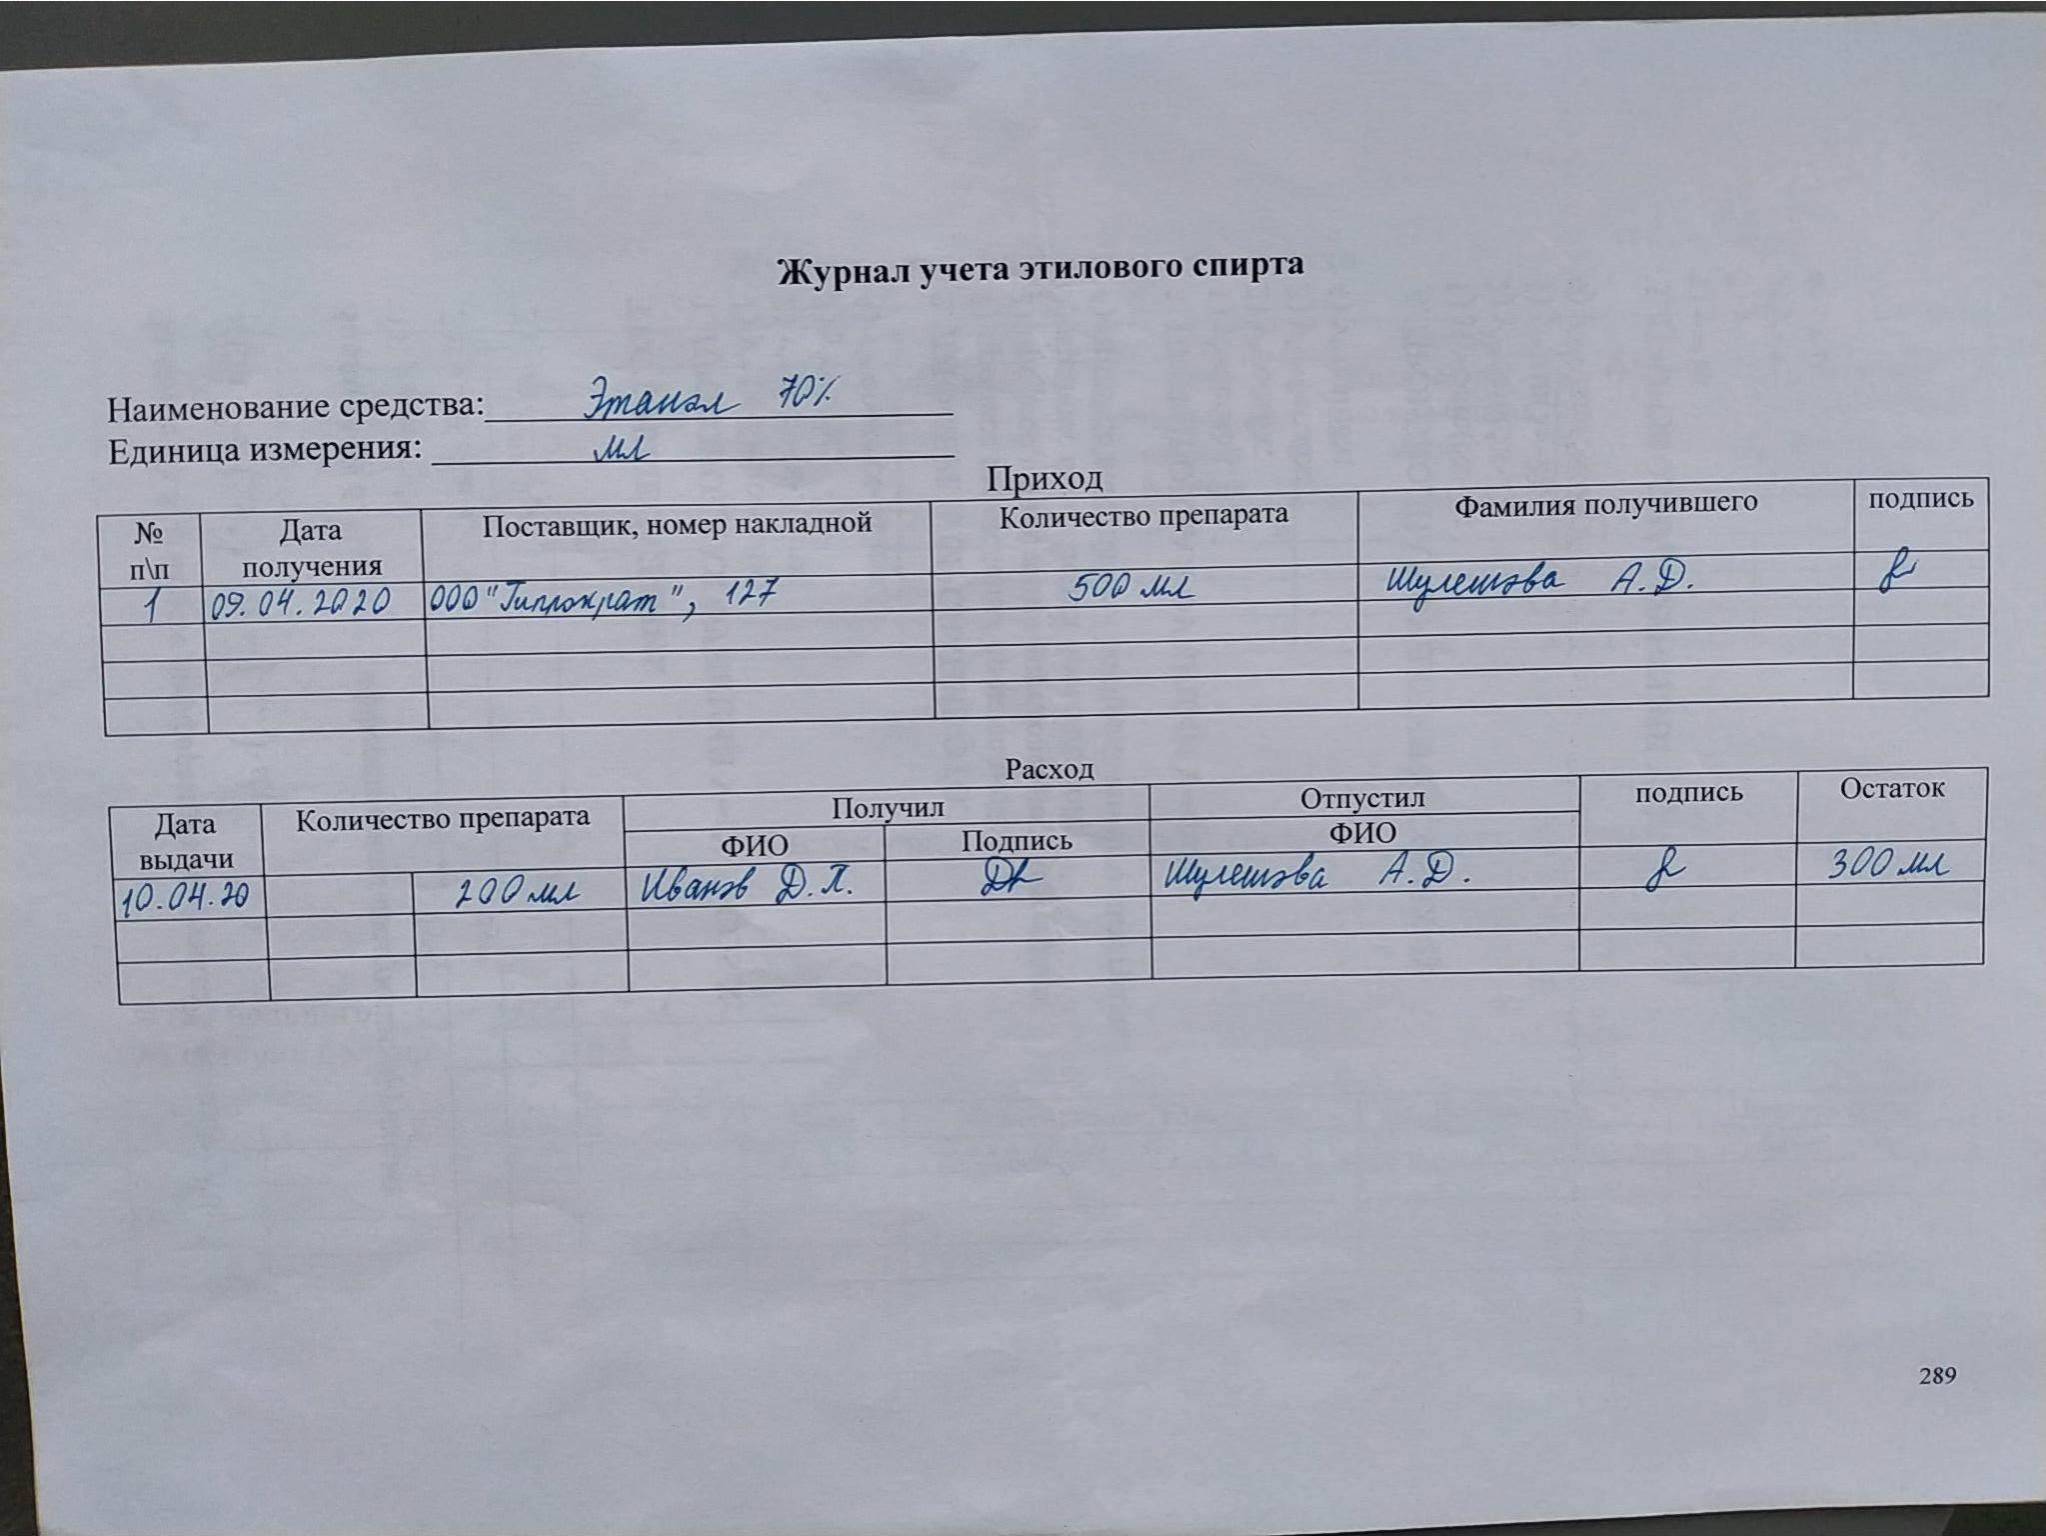 Журнал учета этилового спирта
Наименование средства: Этанол 70%
Единица измерения: мл
Приход
№ п\п Дата получения Поставщик, номер накладной Количество препарата Фамилия получившего подпись
1 09.04.2020 ООО "Гиппократ", 127 500 мл Шулешова А.Д.
Расход
Дата выдачи Количество препарата Получил Отпустил подпись Остаток
ФИО Подпись ФИО
10.04.20 200 мл Иванов Д.П. Шулешова А.Д. 300 мл
289